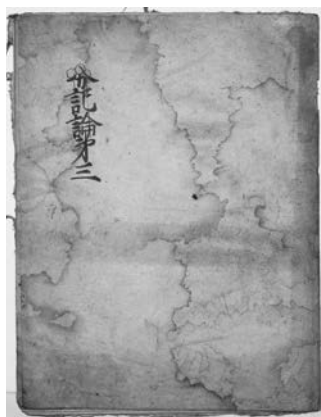 分記論第三